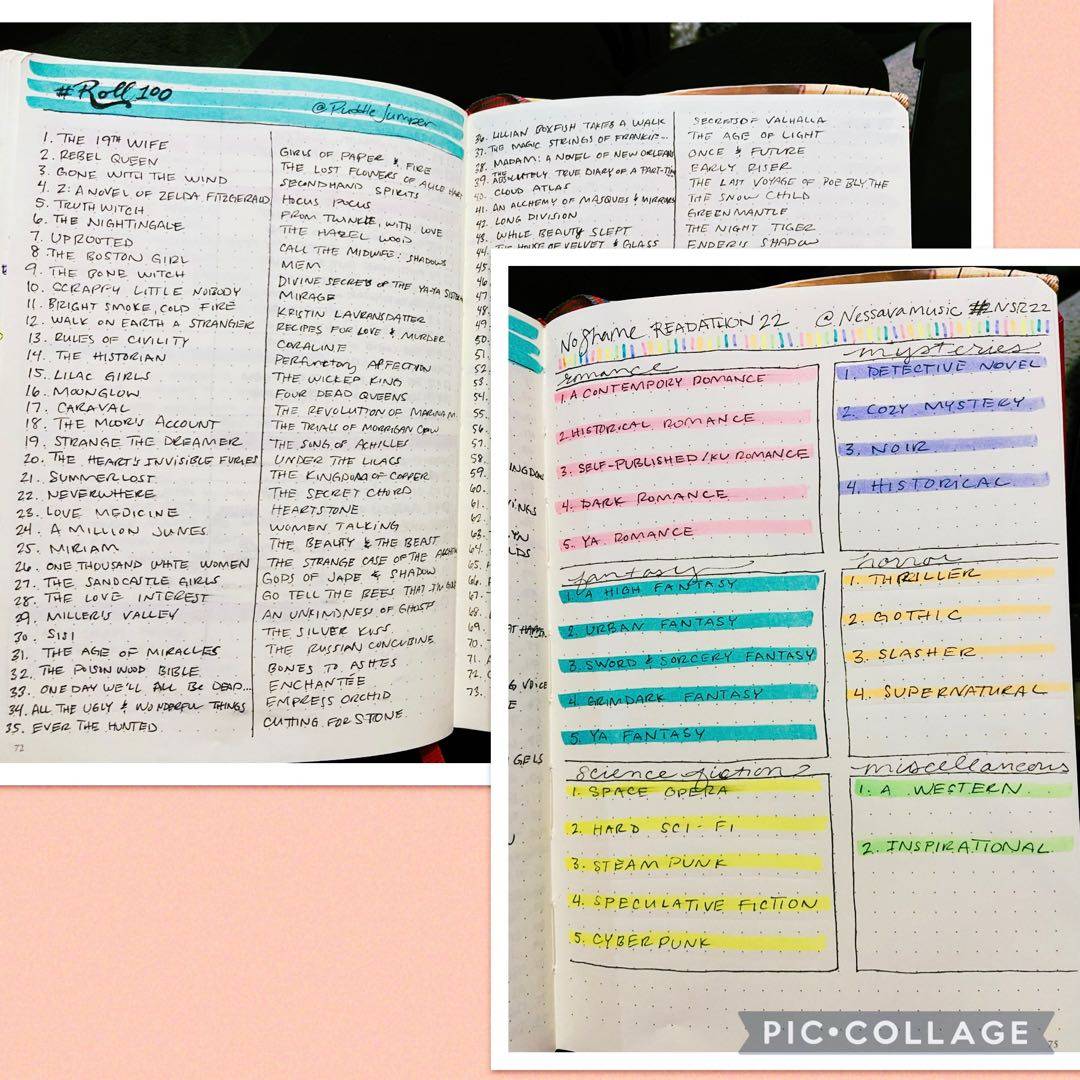 #Roll100
@PuddleJumper
1. THE 19TH WIFE
2. REBEL QUEEN
3. GONE WITH THE WIND
4. Z: A NOVEL OF ZELDA FITZGERALD
5. TRUTHWITCH
6. THE NIGHTINGALE
7. UPROOTED
8. THE BOSTON GIRL
9. THE BONE WITCH
10. SCRAPPY LITTLE NOBODY
11. BRIGHT SMOKE, COLD FIRE
12. WALK ON EARTH A STRANGER
13. RULES OF CIVILITY
14. THE HISTORIAN
15. LILAC GIRLS
16. MOONGLOW
17. CARAVAL
18. THE MOOR'S ACCOUNT
19. STRANGE THE DREAMER
20. THE HEART'S INVISIBLE FURIES
21. SUMMERLOST
22. NEVERWHERE
23. LOVE MEDICINE
24. A MILLION JUNES
25. MIRIAM
26. ONE THOUSAND WHITE WOMEN
27. THE SANDCASTLE GIRLS
28. THE LOVE INTEREST
29. MILLER'S VALLEY
30. SISI
31. THE AGE OF MIRACLES
32. THE POISONWOOD BIBLE
33. ONE DAY WE'LL ALL BE DEAD...
34. ALL THE UGLY & WONDERFUL THINGS
35. EVER THE HUNTED
72
GIRLS OF PAPER & FIRE
THE LOST FLOWERS OF ALICE HART
SECONDHAND SPIRITS
HOCUS POCUS
FROM TWINKLE, WITH LOVE
THE HAZEL WOOD
CALL THE MIDWIFE: SHADOWS
MEM
DIVINE SECRETS OF THE YA-YA SISTERH
MIRAGE
KRISTIN LAVRANSDATTER
RECIPES FOR LOVE & MURDER
CORALINE
PERFUNCTORY AFFECTION
THE WICKED KING
FOUR DEAD QUEENS
THE REVOLUTION OF MARINA M
THE TRIALS OF MORRIGAN CROW
THE SONG OF ACHILLES
UNDER THE LILACS
THE KINGDOM OF COPPER
THE SECRET CHORD
HEARTSTONE
WOMEN TALKING
THE BEAUTY & THE BEAST
THE STRANGE CASE OF THE
GODS OF JADE & SHADOW
GO TELL THE BEES THAT I'M
AN UNKINDNESS OF GHOSTS
THE SILVER KISS
THE RUSSIAN CONCUBINE
BONES TO ASHES
ENCHANTÉE
EMPRESS ORCHID
CUTTING FOR STONE
36. LILLIAN BOXFISH TAKES A WALK
37. THE MAGIC STRINGS OF FRANKIE...
38. MADAM: A NOVEL OF NEW ORLEANS
39. THE ABSOLUTELY TRUE DIARY OF A PART-TIME
40. CLOUD ATLAS
41. AN ALCHEMY OF MASQUES & MIRRORS
42. LONG DIVISION
43. WHILE BEAUTY SLEPT
44. THE HOUSE OF VELVET & GLASS
45.
46.
47.
48.
49.
50.
51.
52.
53.
54.
55.
56.
57.
58.
59.
60.
61.
62.
63.
64.
65.
66.
67.
68.
69.
70.
71.
72.
73.
SECRETS OF VALHALLA
THE AGE OF LIGHT
ONCE & FUTURE
EARLY RISER
THE LAST VOYAGE OF POE BLYTHE
THE SNOW CHILD
GREENMANTLE
THE NIGHT TIGER
ENDER'S SHADOW
No Shame READATHON 22
@Nessavamusic #NSR22
romance
1. A CONTEMPORY ROMANCE
2. HISTORICAL ROMANCE
3. SELF-PUBLISHED/KU ROMANCE
4. DARK ROMANCE
5. YA ROMANCE
fantasy
1. A HIGH FANTASY
2. URBAN FANTASY
3. SWORD & SORCERY FANTASY
4. GRIMDARK FANTASY
5. YA FANTASY
science fiction
1. SPACE OPERA
2. HARD SCI-FI
3. STEAM PUNK
4. SPECULATIVE FICTION
5. CYBERPUNK
mysteries
1. DETECTIVE NOVEL
2. COZY MYSTERY
3. NOIR
4. HISTORICAL
horror
1. THRILLER
2. GOTHIC
3. SLASHER
4. SUPERNATURAL
miscellaneous
1. A WESTERN
2. INSPIRATIONAL
75
PIC•COLLAGE